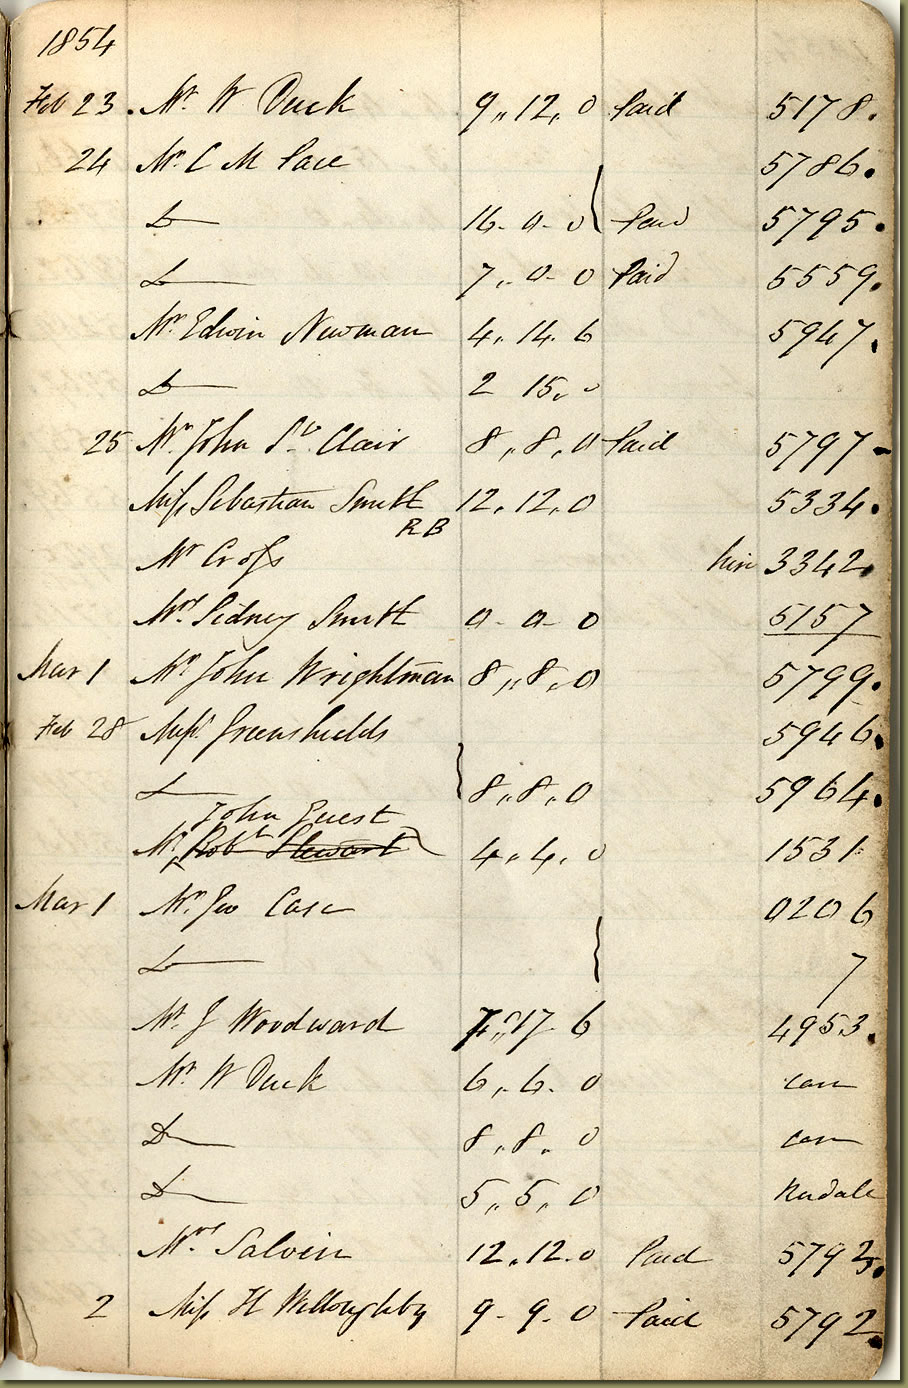 1854
Feb 23. Mr W Duck 9,,12,0 Paid 5178.
24 Mr C M Pace 5786.
Do 16-0-0 Paid 5795.
Do 7,,0-0 Paid 5559.
Mr Edwin Newman 4,14.6 5947.
Do 2 15,,0
25 Mr John St Clair 8,,8,0 Paid 5797-
Miss Sebastian Smith 12,12,0 5334.
RB
Mr Cross hire 3342.
Mrs Sidney Smith 0-0-0 5157
Mar 1 Mr John Wrightman 8,,8,0 5799.
Feb 28 Miss Greenshields 5946.
Do 8,,8,,0 5964.
John Guest
Mr Robt Stewart 4,,4,0 1531.
Mar 1 Mr Geo Case 0206
Do 7
Mr J Woodward 7,,17-6 4953.
Mr W Duck 6,,6-0 con
Do 8,,8,0 con
Do 5,,5,0
Mrs Salvin 12,,12.0 Paid 5793.
2 Miss H Willoughby 9-9.0 Paid 5792.